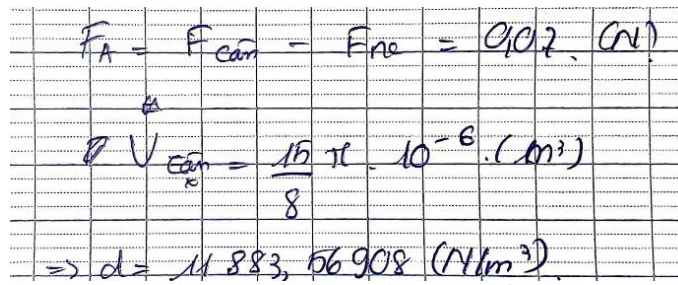 F_A = F_cân - F_ne = 0,07. (N)
V_cân = 15/8 π . 10^-6 . (m³)
=> d = 11 883, 56 908 (N/m³).